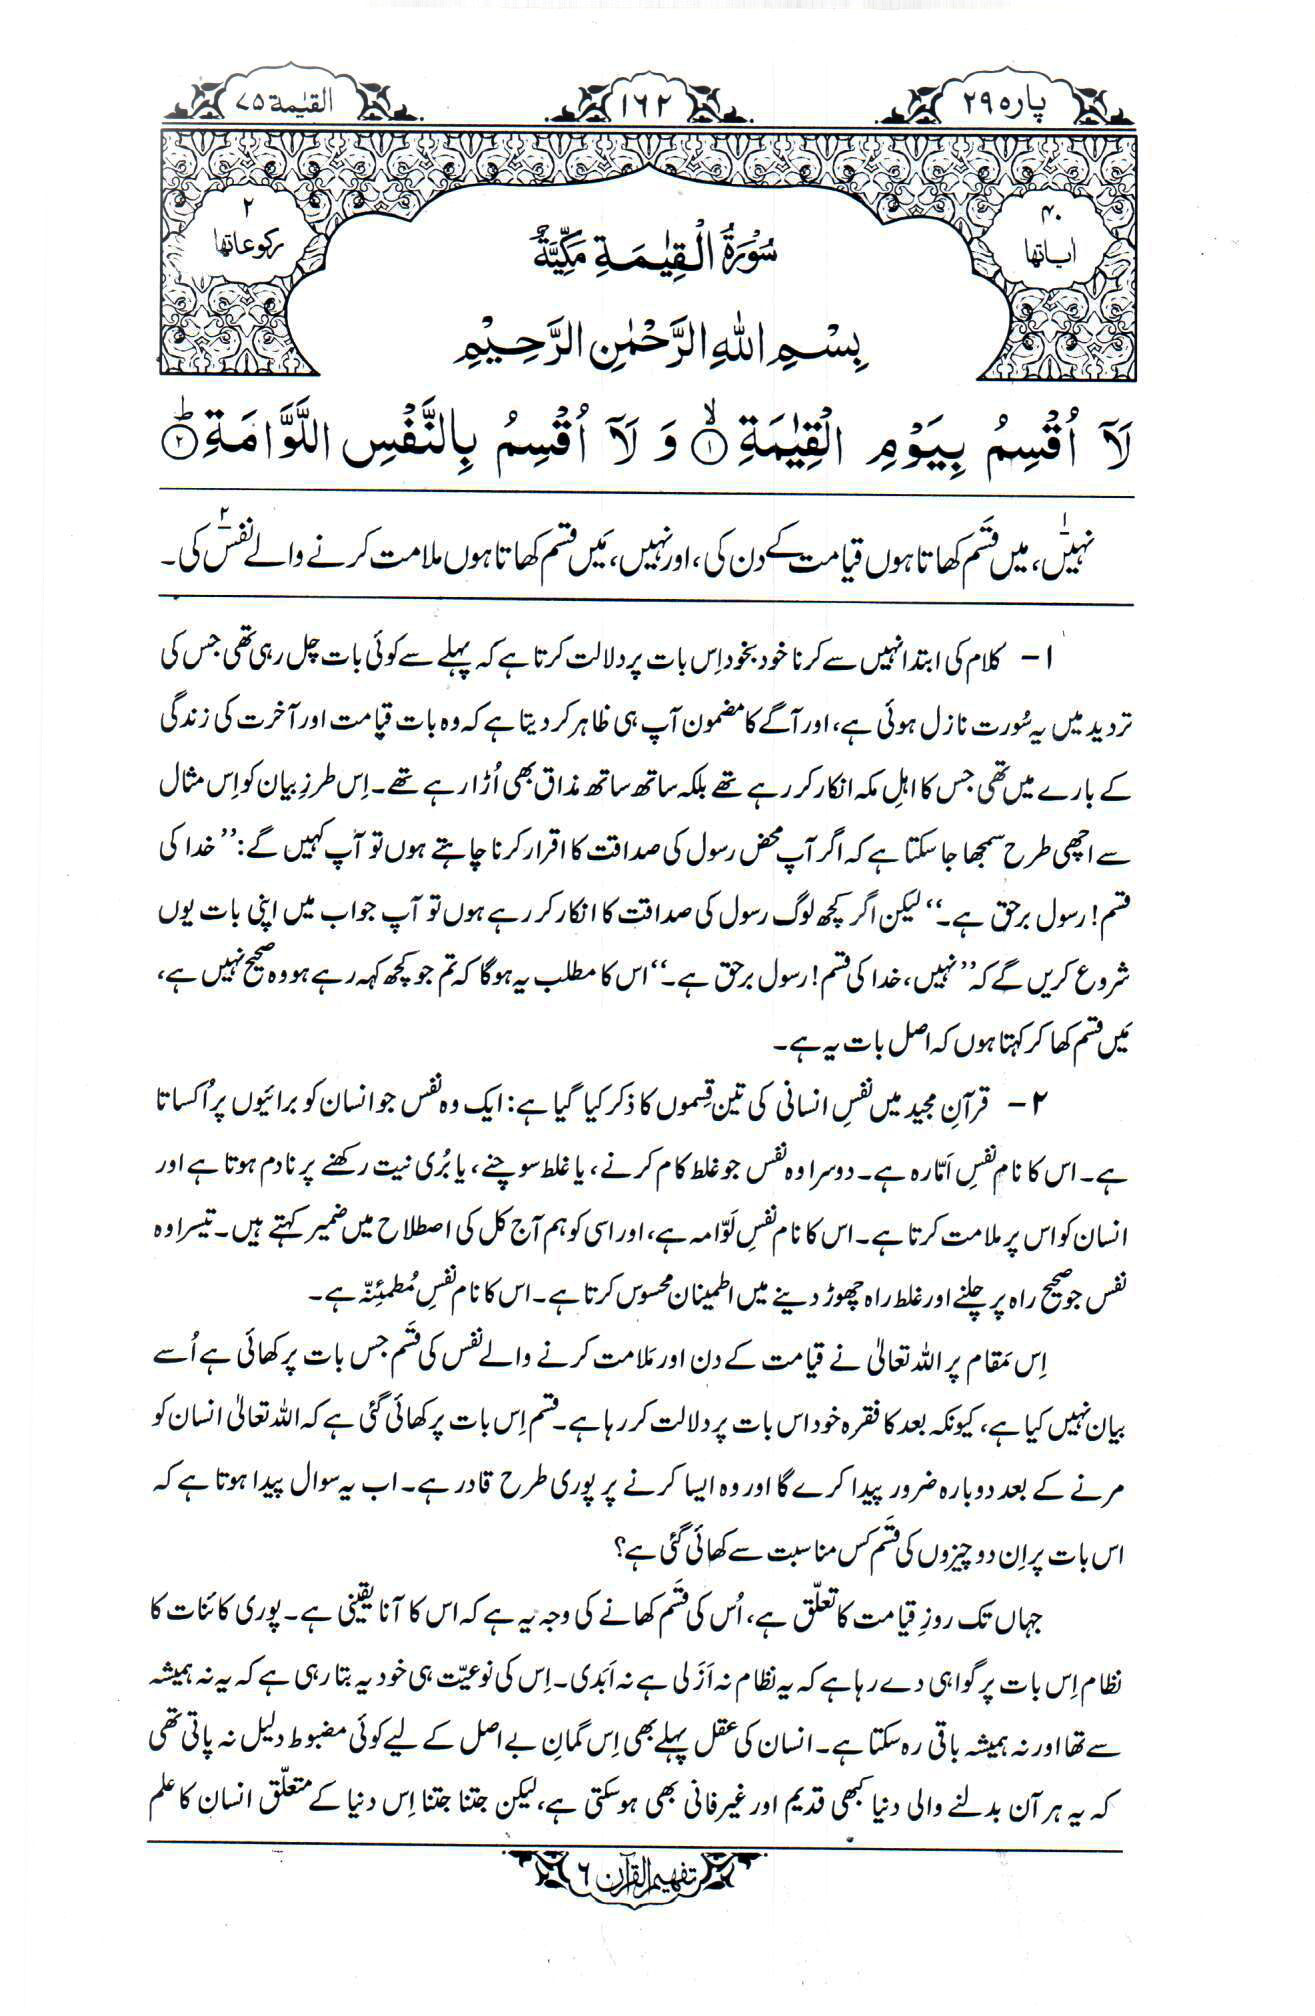 پارہ ۲۹
۱۶۲
القیٰمة ۷۵
۴۰
اٰیاتھا
سُوْرَۃُ الْقِیٰمَةِ مَکِّیَّةٌ
۲
رکوعاتھا
بِسْمِ اللّٰهِ الرَّحْمٰنِ الرَّحِیْمِ
لَآ اُقْسِمُ بِیَوْمِ الْقِیٰمَةِ ۙ﴿۱﴾ وَ لَآ اُقْسِمُ بِالنَّفْسِ اللَّوَّامَةِ ؕ﴿۲﴾
نہیں۱، مَیں قَسم کھاتا ہوں قیامت کے دن کی، اور نہیں، مَیں قسم کھاتا ہوں ملامت کرنے والے نفس۲ کی۔
۱ – کلام کی ابتدا نہیں سے کرنا خود بخود اِس بات پر دلالت کرتا ہے کہ پہلے سے کوئی بات چل رہی تھی جس کی
تردید میں یہ سُورت نازل ہوئی ہے، اور آگے کا مضمون آپ ہی ظاہر کر دیتا ہے کہ وہ بات قیامت اور آخرت کی زندگی
کے بارے میں تھی جس کا اہلِ مکہ انکار کر رہے تھے بلکہ ساتھ ساتھ مذاق بھی اُڑا رہے تھے۔ اِس طرزِ بیان کو اِس مثال
سے اچھی طرح سمجھا جا سکتا ہے کہ اگر آپ محض رسول کی صداقت کا اقرار کرنا چاہتے ہوں تو آپ کہیں گے: ’’خدا کی
قسم! رسول برحق ہے۔‘‘ لیکن اگر کچھ لوگ رسول کی صداقت کا انکار کر رہے ہوں تو آپ جواب میں اپنی بات یوں
شروع کریں گے کہ ’’نہیں، خدا کی قسم! رسول برحق ہے۔‘‘ اس کا مطلب یہ ہوگا کہ تم جو کچھ کہہ رہے ہو وہ صحیح نہیں ہے،
مَیں قسم کھا کر کہتا ہوں کہ اصل بات یہ ہے۔
۲ – قرآنِ مجید میں نفسِ انسانی کی تین قِسموں کا ذکر کیا گیا ہے: ایک وہ نفس جو انسان کو برائیوں پر اُکساتا
ہے۔ اس کا نام نفسِ اَمّارہ ہے۔ دوسرا وہ نفس جو غلط کام کرنے، یا غلط سوچنے، یا بُری نیت رکھنے پر نادم ہوتا ہے اور
انسان کو اس پر ملامت کرتا ہے۔ اس کا نام نفسِ لَوّامہ ہے، اور اسی کو ہم آج کل کی اصطلاح میں ضمیر کہتے ہیں۔ تیسرا وہ
نفس جو صحیح راہ پر چلنے اور غلط راہ چھوڑ دینے میں اطمینان محسوس کرتا ہے۔ اس کا نام نفسِ مُطمئِنّہ ہے۔
اِس مَقام پر اللہ تعالیٰ نے قیامت کے دن اور مَلامت کرنے والے نفس کی قَسم جس بات پر کھائی ہے اُسے
بیان نہیں کیا ہے، کیونکہ بعد کا فقرہ خود اس بات پر دلالت کر رہا ہے۔ قسم اِس بات پر کھائی گئی ہے کہ اللہ تعالیٰ انسان کو
مرنے کے بعد دوبارہ ضرور پیدا کرے گا اور وہ ایسا کرنے پر پوری طرح قادر ہے۔ اب یہ سوال پیدا ہوتا ہے کہ
اس بات پر اِن دو چیزوں کی قَسم کس مناسبت سے کھائی گئی ہے؟
جہاں تک روزِ قیامت کا تعلّق ہے، اُس کی قَسم کھانے کی وجہ یہ ہے کہ اس کا آنا یقینی ہے۔ پوری کائنات کا
نظام اِس بات پر گواہی دے رہا ہے کہ یہ نظام نہ اَزَلی ہے نہ اَبَدی۔ اِس کی نوعیّت ہی خود یہ بتا رہی ہے کہ یہ نہ ہمیشہ
سے تھا اور نہ ہمیشہ باقی رہ سکتا ہے۔ انسان کی عقل پہلے بھی اِس گمانِ بے اصل کے لیے کوئی مضبوط دلیل نہ پاتی تھی
کہ یہ ہر آن بدلنے والی دنیا کبھی قدیم اور غیر فانی بھی ہو سکتی ہے، لیکن جتنا جتنا اِس دنیا کے متعلّق انسان کا علم
تفہیم القرآن ۶